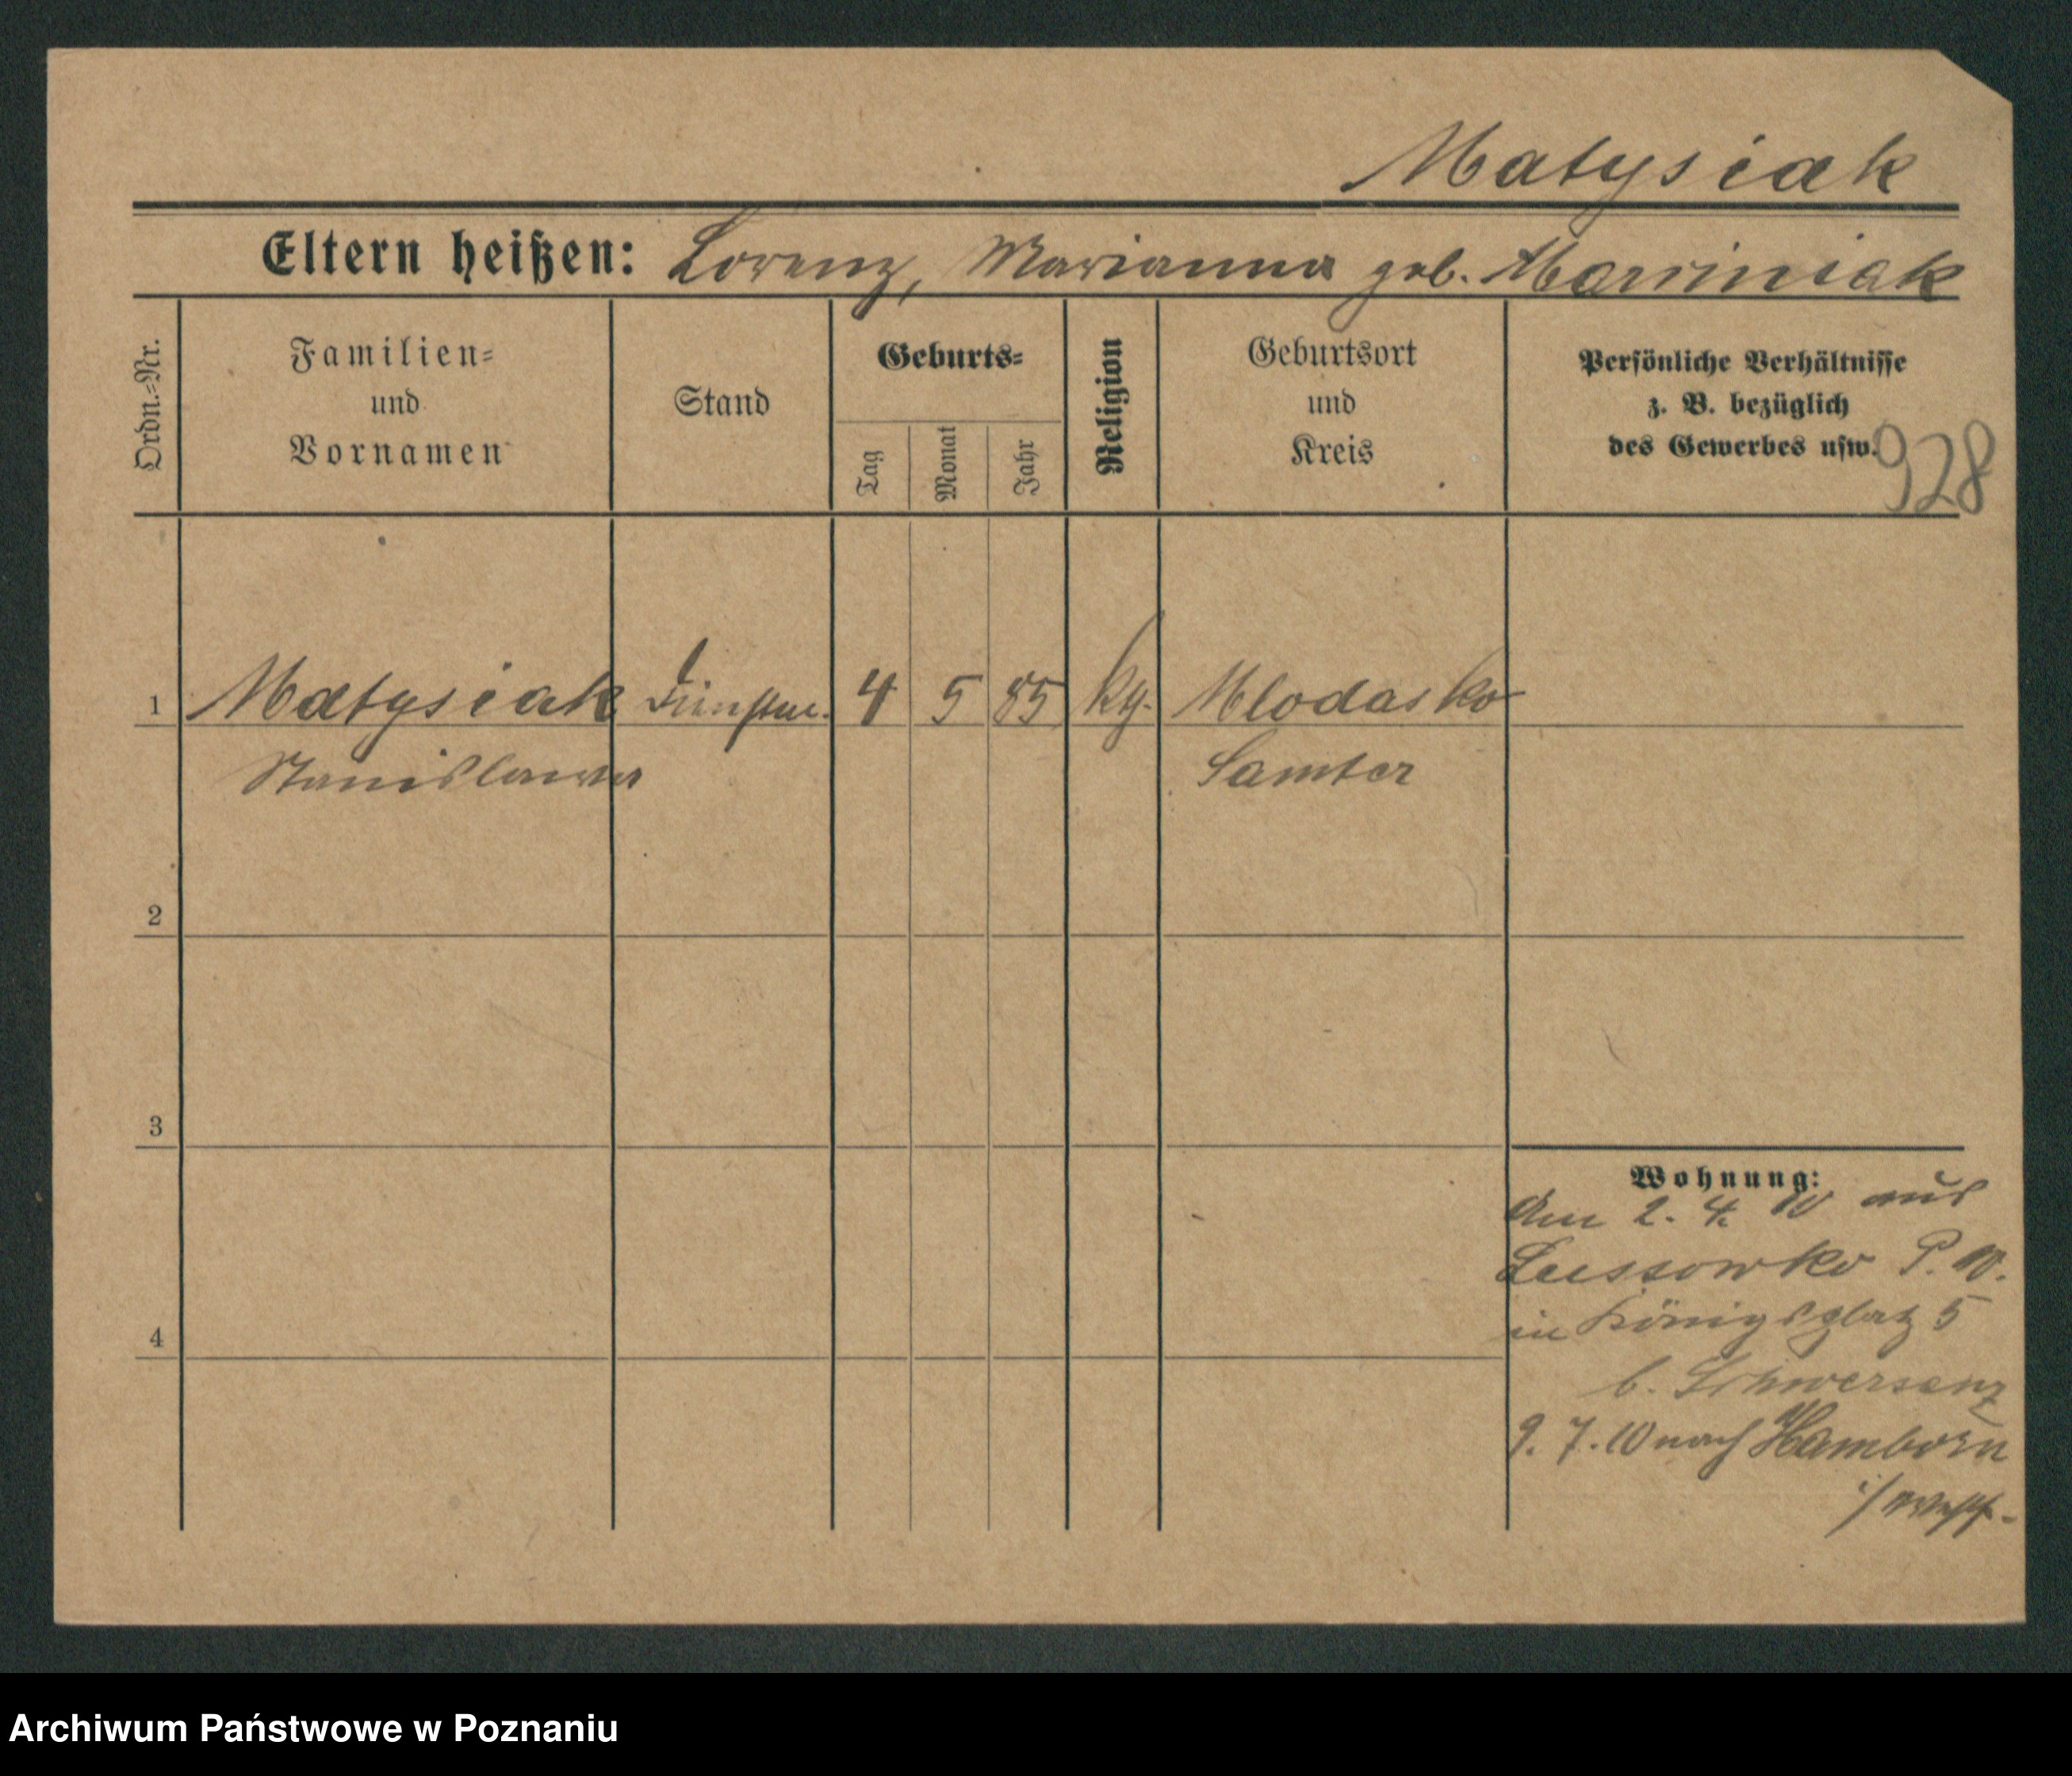 Matysiak
Eltern heißen: Lorenz, Marianna geb. Marciniak
Ordn.=Nr.
Familien=
und
Vornamen
Stand
Geburts=
Tag
Monat
Jahr
Religion
Geburtsort
und
Kreis
Persönliche Verhältnisse
z. B. bezüglich
des Gewerbes usw.
928
1 Matysiak 4 5 85 kth. Mlodasko
Stanislawa Samter
2
3
4
Wohnung:
Am 2. 4. 10 aus
Lussowko P. W.
in Königsplatz 5
b. Schwersenz
9. 7. 10 nach Hamborn
i/Westf.
Archiwum Państwowe w Poznaniu